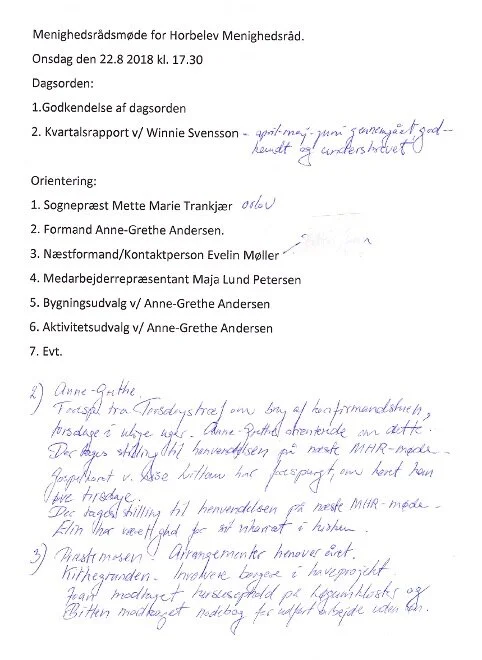 Menighedsrådsmøde for Horbelev Menighedsråd.
Onsdag den 22.8 2018 kl. 17.30
Dagsorden:
1.Godkendelse af dagsorden
2. Kvartalsrapport v/ Winnie Svensson - april-maj-juni gennemgået, god-
kendt og underskrevet
Orientering:
1. Sognepræst Mette Marie Trankjær orlov
2. Formand Anne-Grethe Andersen.
3. Næstformand/Kontaktperson Evelin Møller
4. Medarbejderrepræsentant Maja Lund Petersen
5. Bygningsudvalg v/ Anne-Grethe Andersen
6. Aktivitetsudvalg v/ Anne-Grethe Andersen
7. Evt.
2) Anne-Grethe.
fra Torsdagstræf om brug af konfirmandstuen,
torsdage i ulige uger. Anne-Grethe orienterede om dette.
Der tages stilling til henvendelsen på næste MHR-møde.
Gospelkoret v. Lillian har forspurgt, om koret kan
øve tirsdage.
Der tages stilling til henvendelsen på næste MHR-møde.
Elin har været for sit i kirken.
3) Præstemosen. Arrangementer henover året.
Kirkegrunden. Involvere borgere i haveprojekt.
modtaget kursusophold på Løgumkloster og
Bitten modtaget for udført arbejde uden løn.